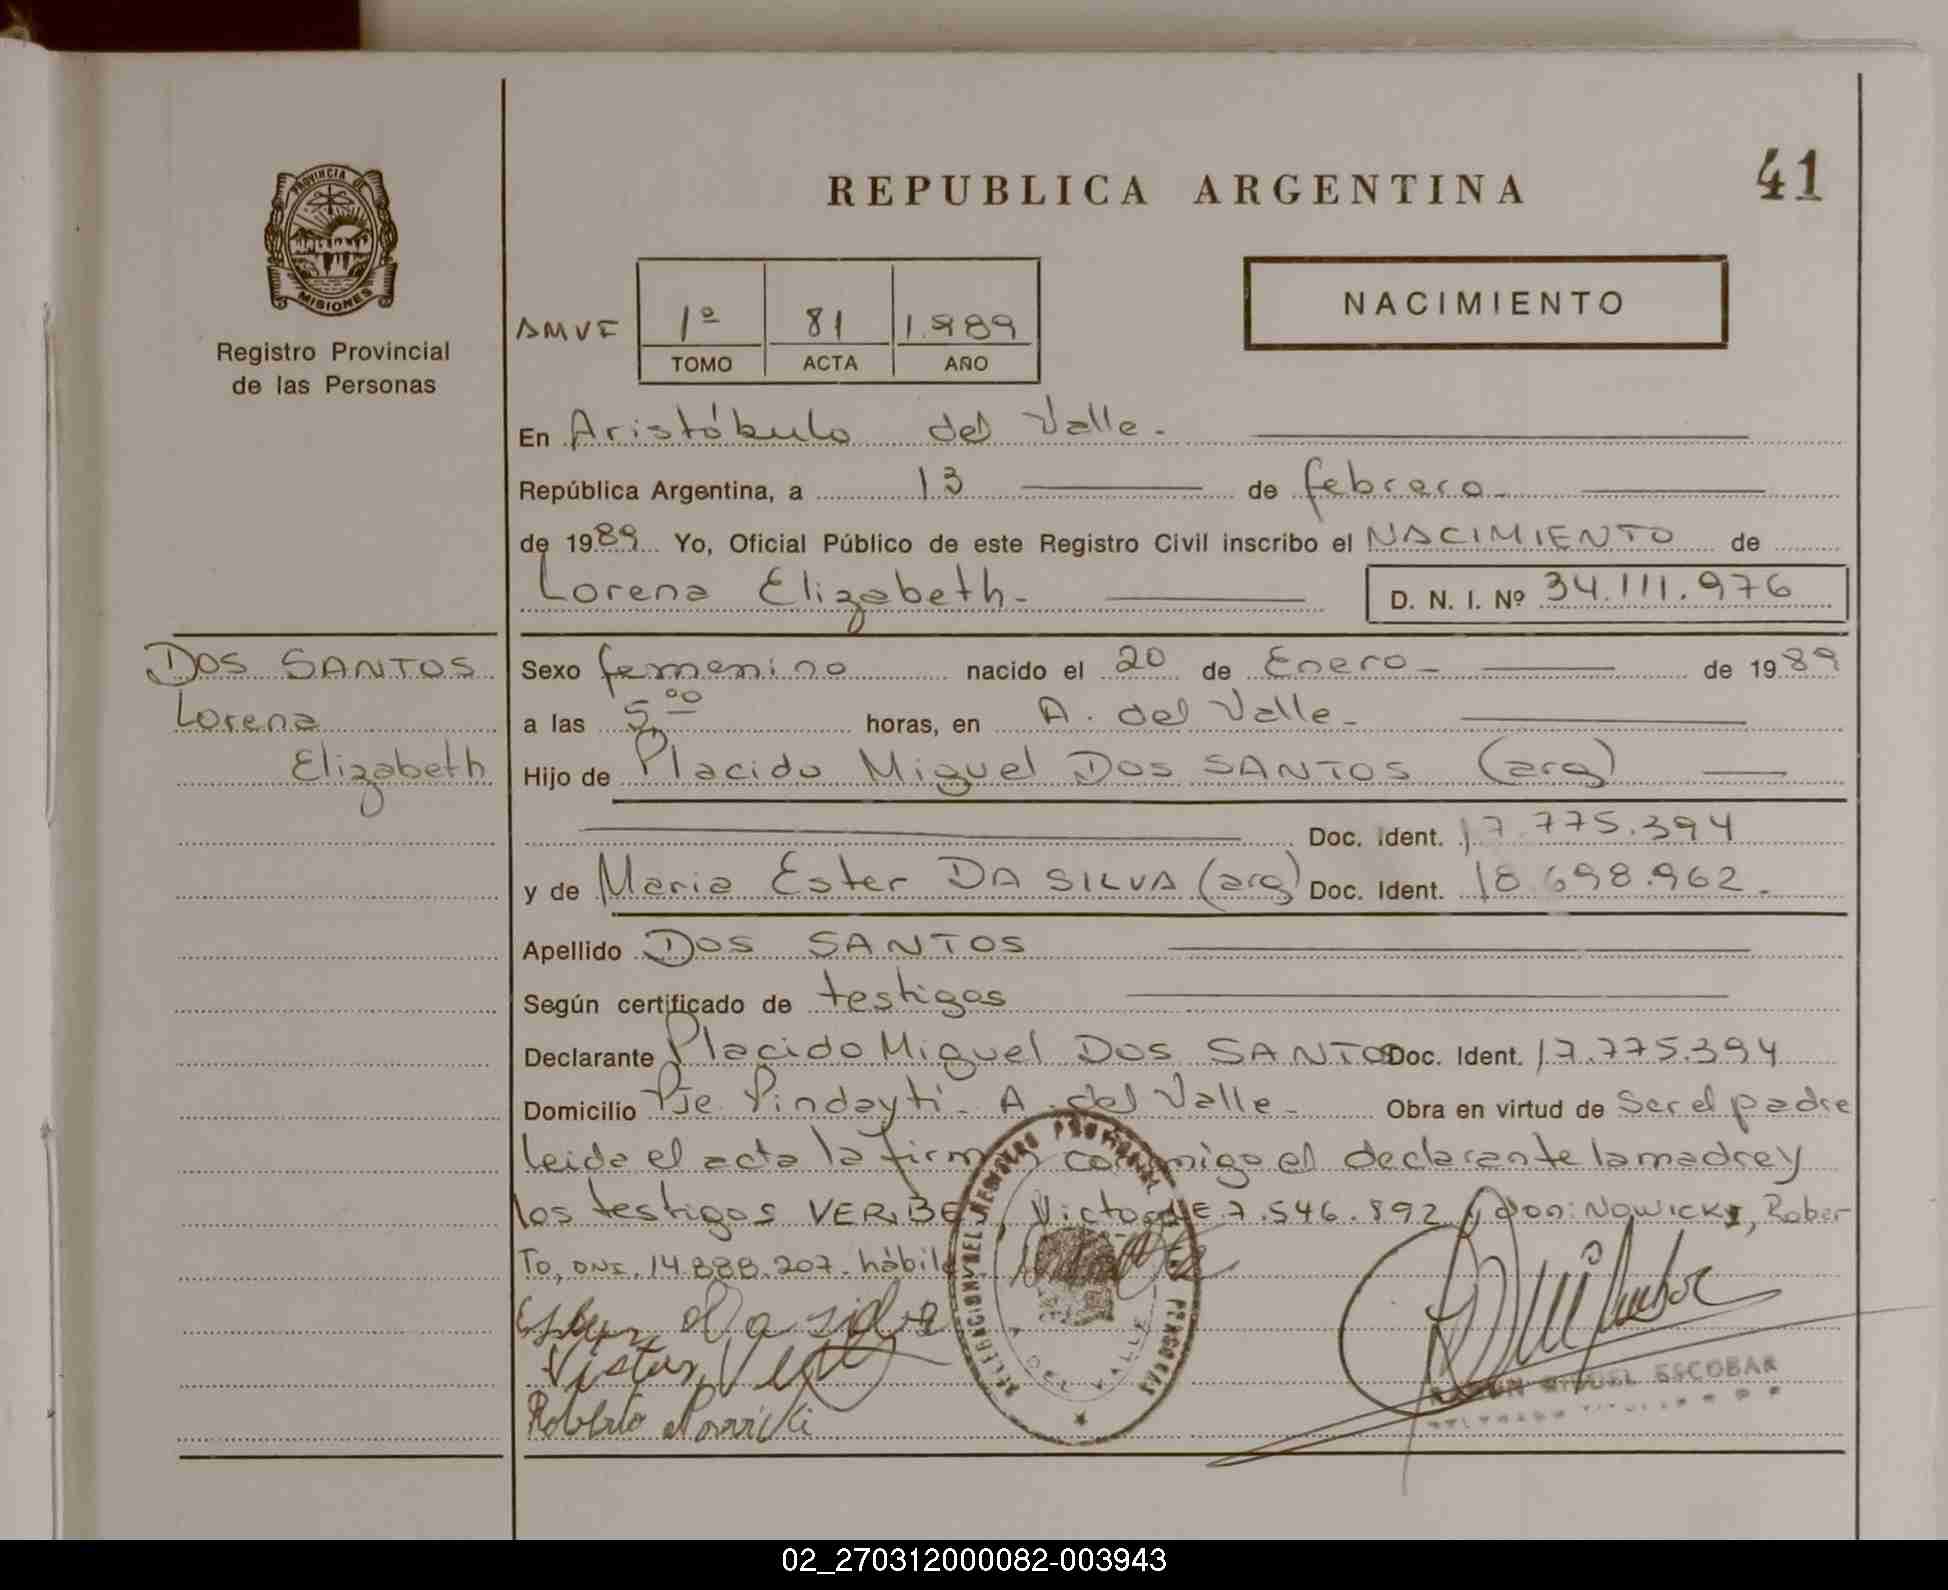 41
REPUBLICA ARGENTINA
PROVINCIA DE
MISIONES
Registro Provincial
de las Personas
NACIMIENTO
AMVE 1º 81 1.989
TOMO ACTA AÑO
En Aristóbulo del Valle.
República Argentina, a 13 de febrero
de 1989 Yo, Oficial Público de este Registro Civil inscribo el NACIMIENTO de
Lorena Elizabeth D. N. I. Nº 34.111.976
DOS SANTOS
Lorena
Elizabeth
Sexo femenino nacido el 20 de Enero de 1989
a las 5,00 horas, en A. del Valle
Hijo de Placido Miguel DOS SANTOS (arg)
Doc. Ident. 17.775.394
y de Maria Ester DA SILVA (arg) Doc. Ident. 18.698.962.
Apellido DOS SANTOS
Según certificado de testigos
Declarante Placido Miguel DOS SANTOS Doc. Ident. 17.775.394
Domicilio Pje Pindayti - A. del Valle Obra en virtud de Ser el padre
leida el acta la firman conmigo el declarante la madre y
los testigos Victor LE 7.546.892 y don: NOWICKI, Rober
To, DNI. 14.888.207. hábiles
Ester da silva
Victor
Roberto Nowicki
DELEGACION DEL REGISTRO PROVINCIAL DE LAS PERSONAS
A. DEL VALLE
RAMON MIGUEL ESCOBAR
02_270312000082-003943